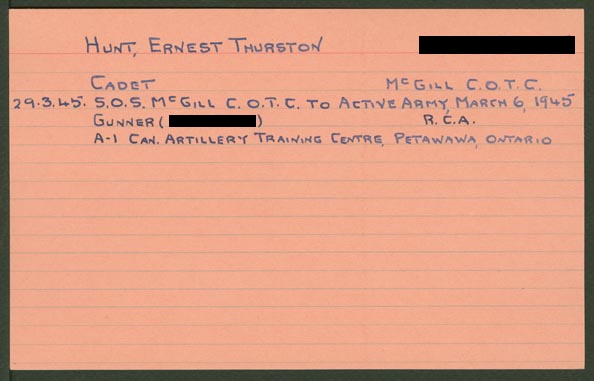 HUNT, ERNEST THURSTON
CADET McGILL C.O.T.C.
29.3.45. S.O.S. McGILL C.O.T.C. TO ACTIVE ARMY, MARCH 6, 1945
GUNNER ( ) R.C.A.
A-1 CAN. ARTILLERY TRAINING CENTRE, PETAWAWA, ONTARIO